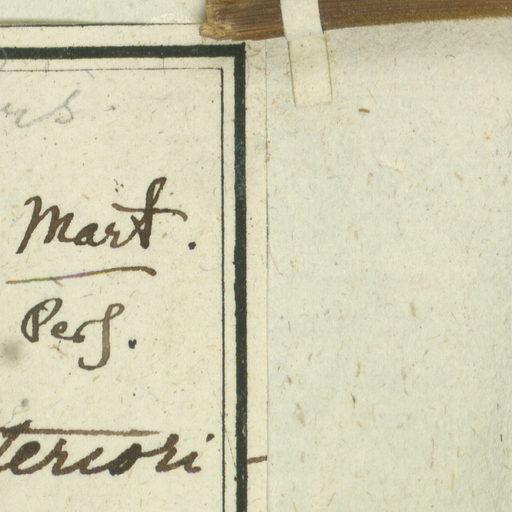 Mart.
Pers.
teriori -